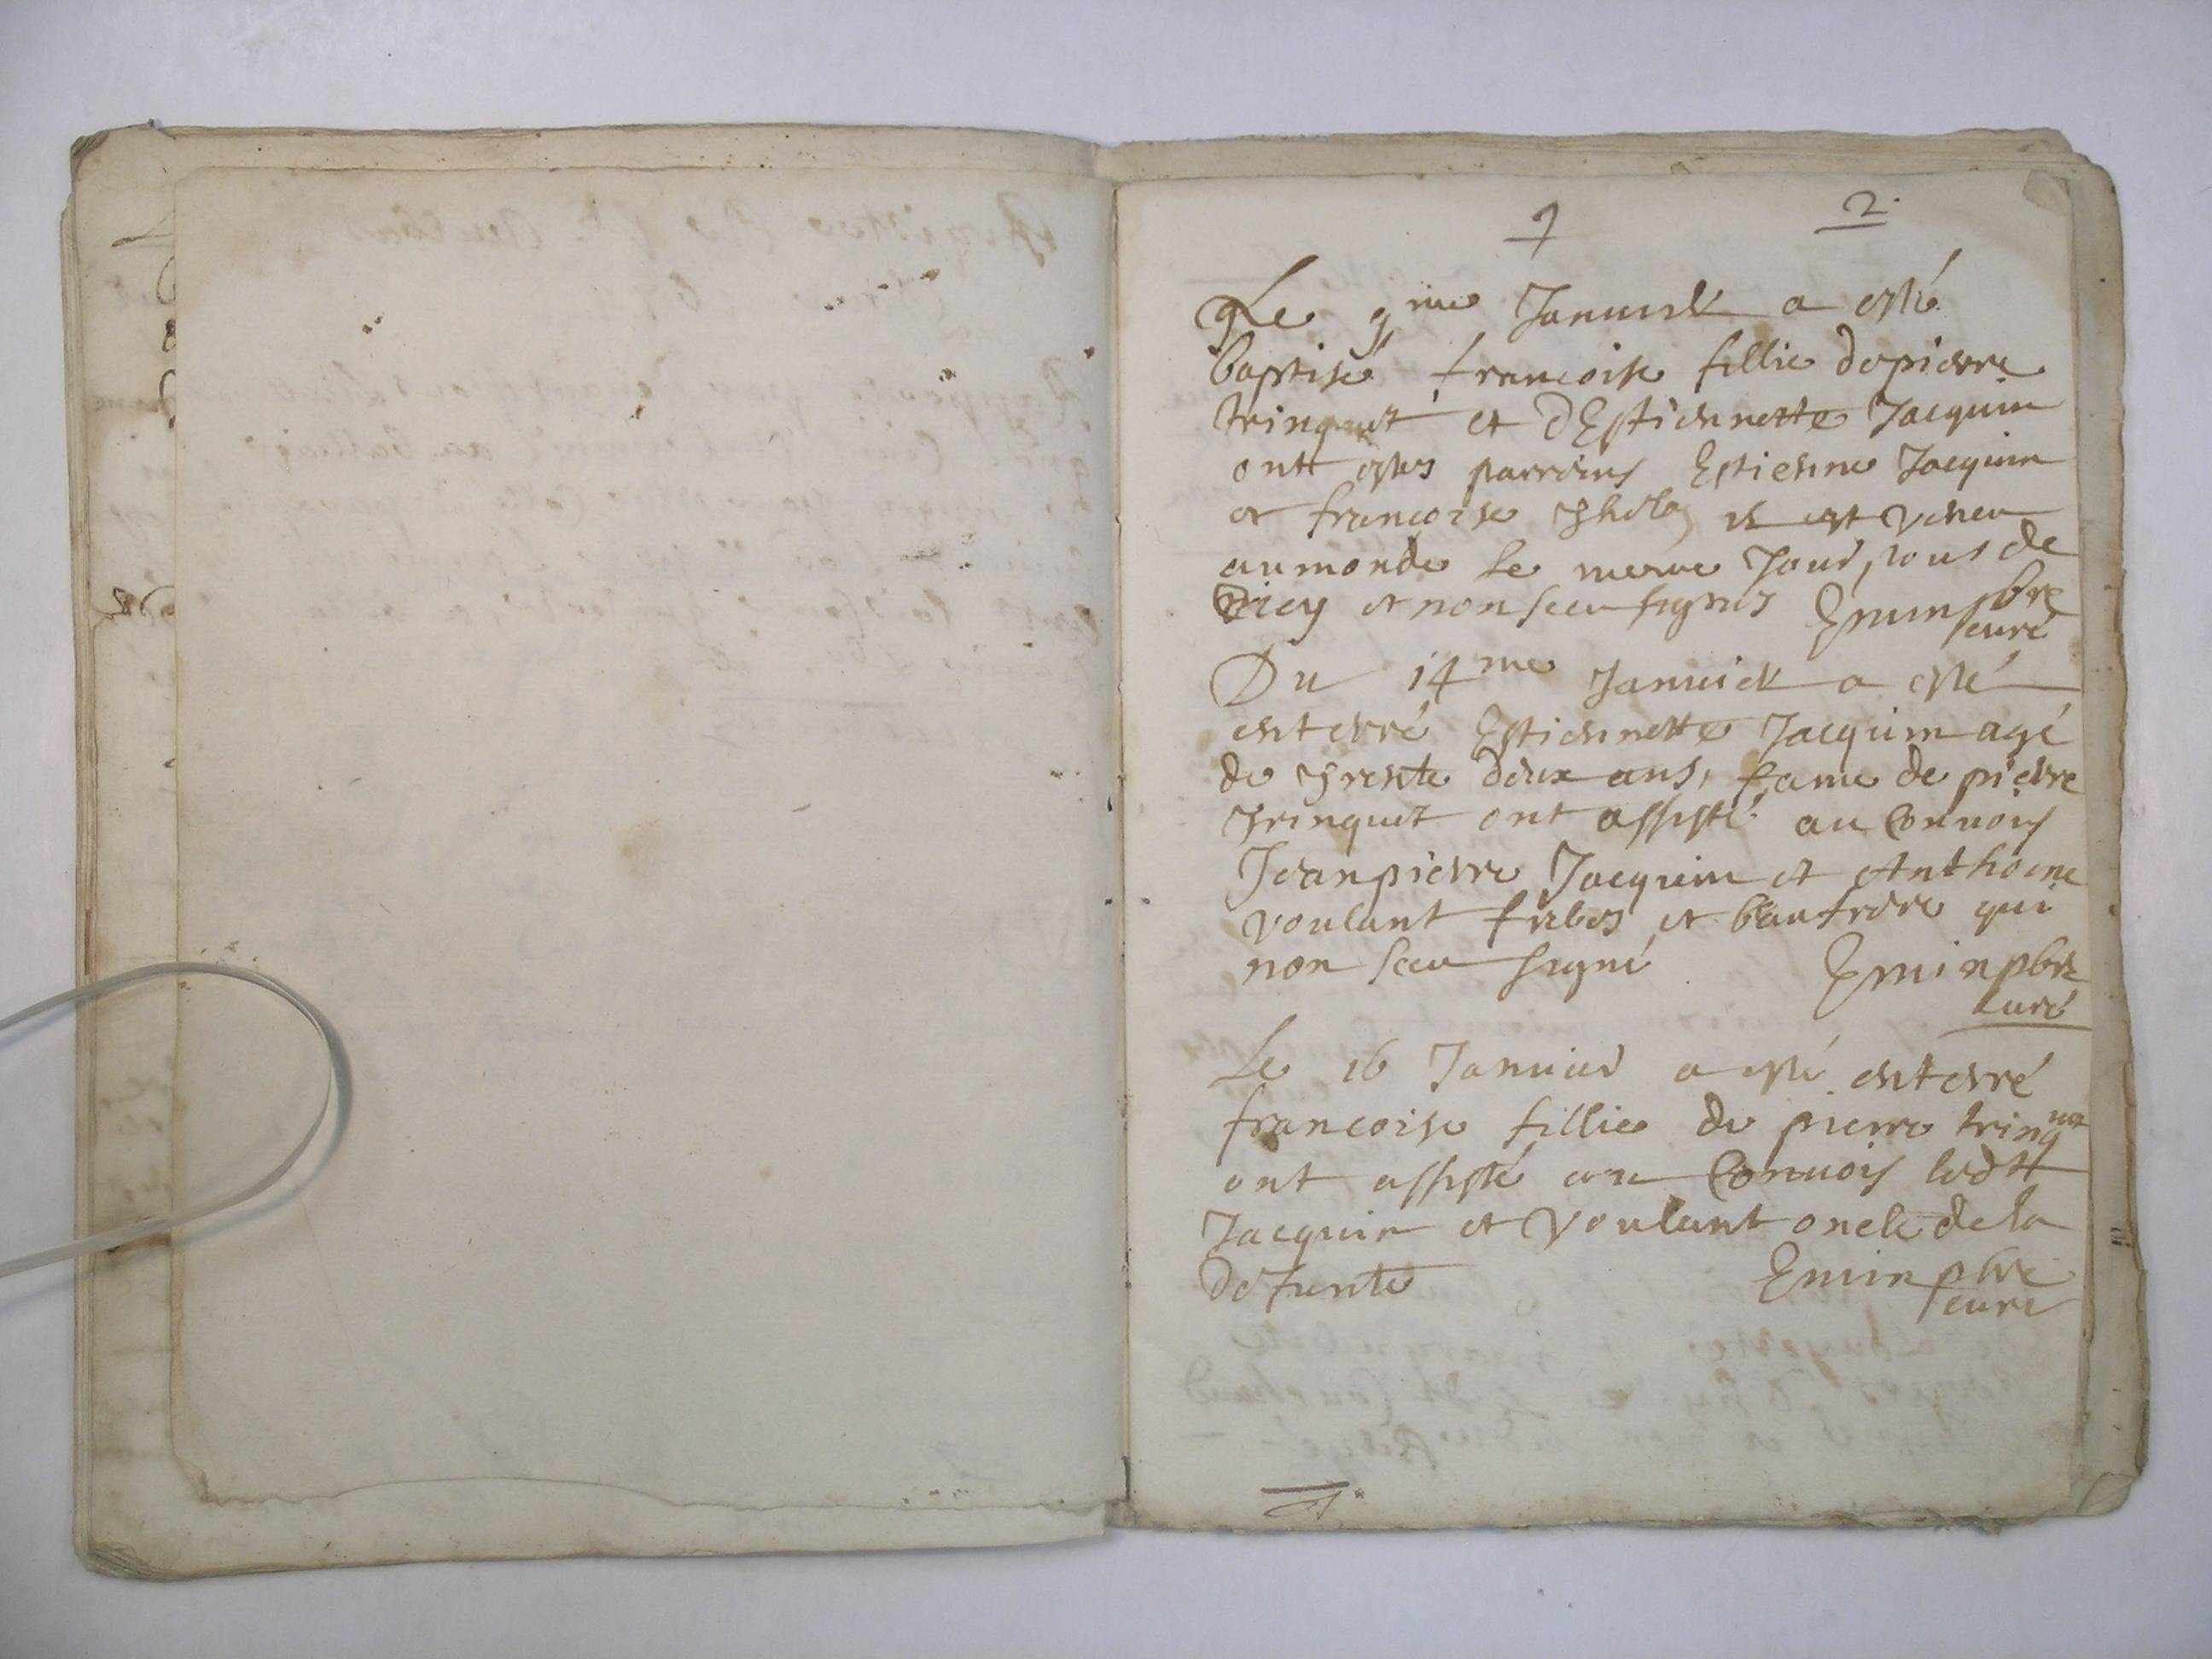 2.
Le 9me Januier a esté
baptisé francoise fillie de pierre
trinquet et d'Estiennette Jacquin
ont estes parrains Estienne Jacquin
et francoise il est veneu
au monde le meme Jour, tous de
et non sceu signes Emin pbre
curé
Du 14me Januier a esté
enterré Estiennette Jacquin agé
de trente deux ans, fame de pierre
trinquet ont assisté au Conuois
Jean pierre Jacquin et Anthoine
voulant freres et beaufrere qui
non sceu signé Emin pbre
curé
Le 16 Januier a esté enterré
francoise fillie de pierre trinquet
ont assisté au Conuois ledtt
Jacquin et Voulant oncle de la
defunte Emin pbre
curé